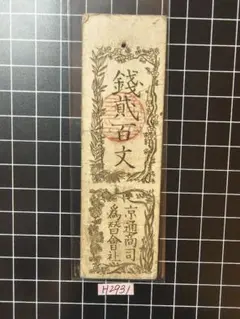 錢貳百文
京通商司
為替會社
H2931